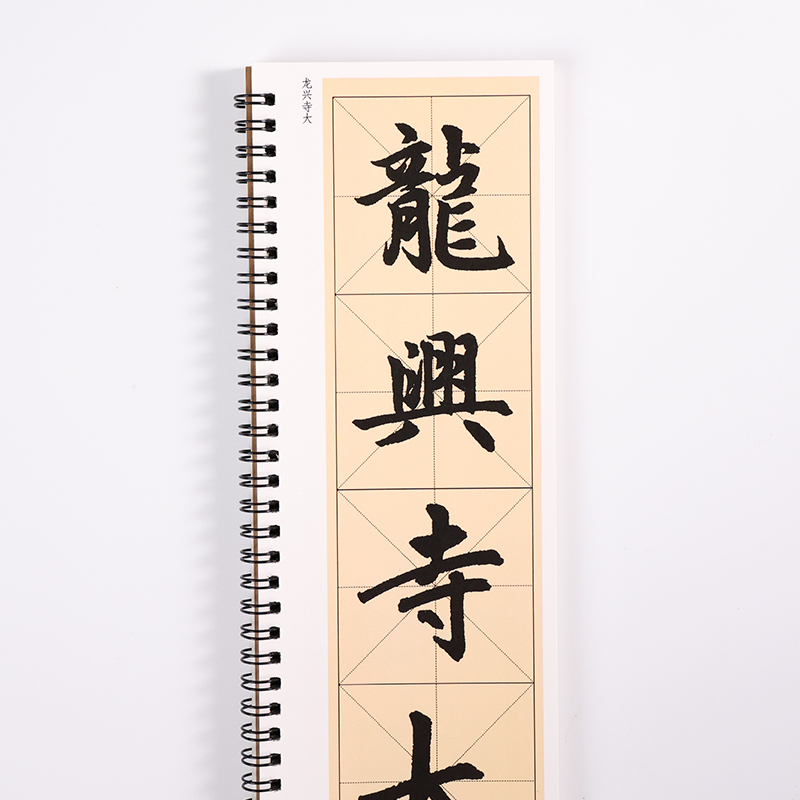 龙兴寺大
龍興寺大